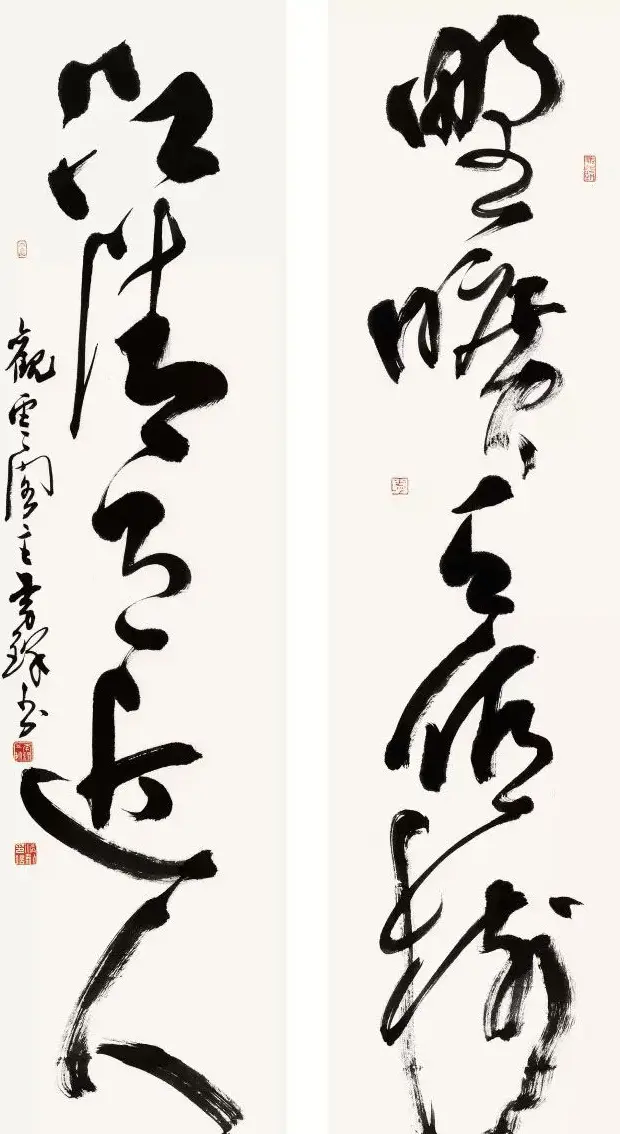 野曠天低樹
江清月近人
觀雲閣主